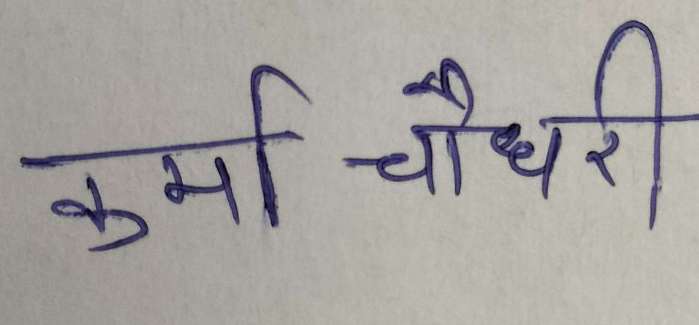 कुर्मा चौधरी